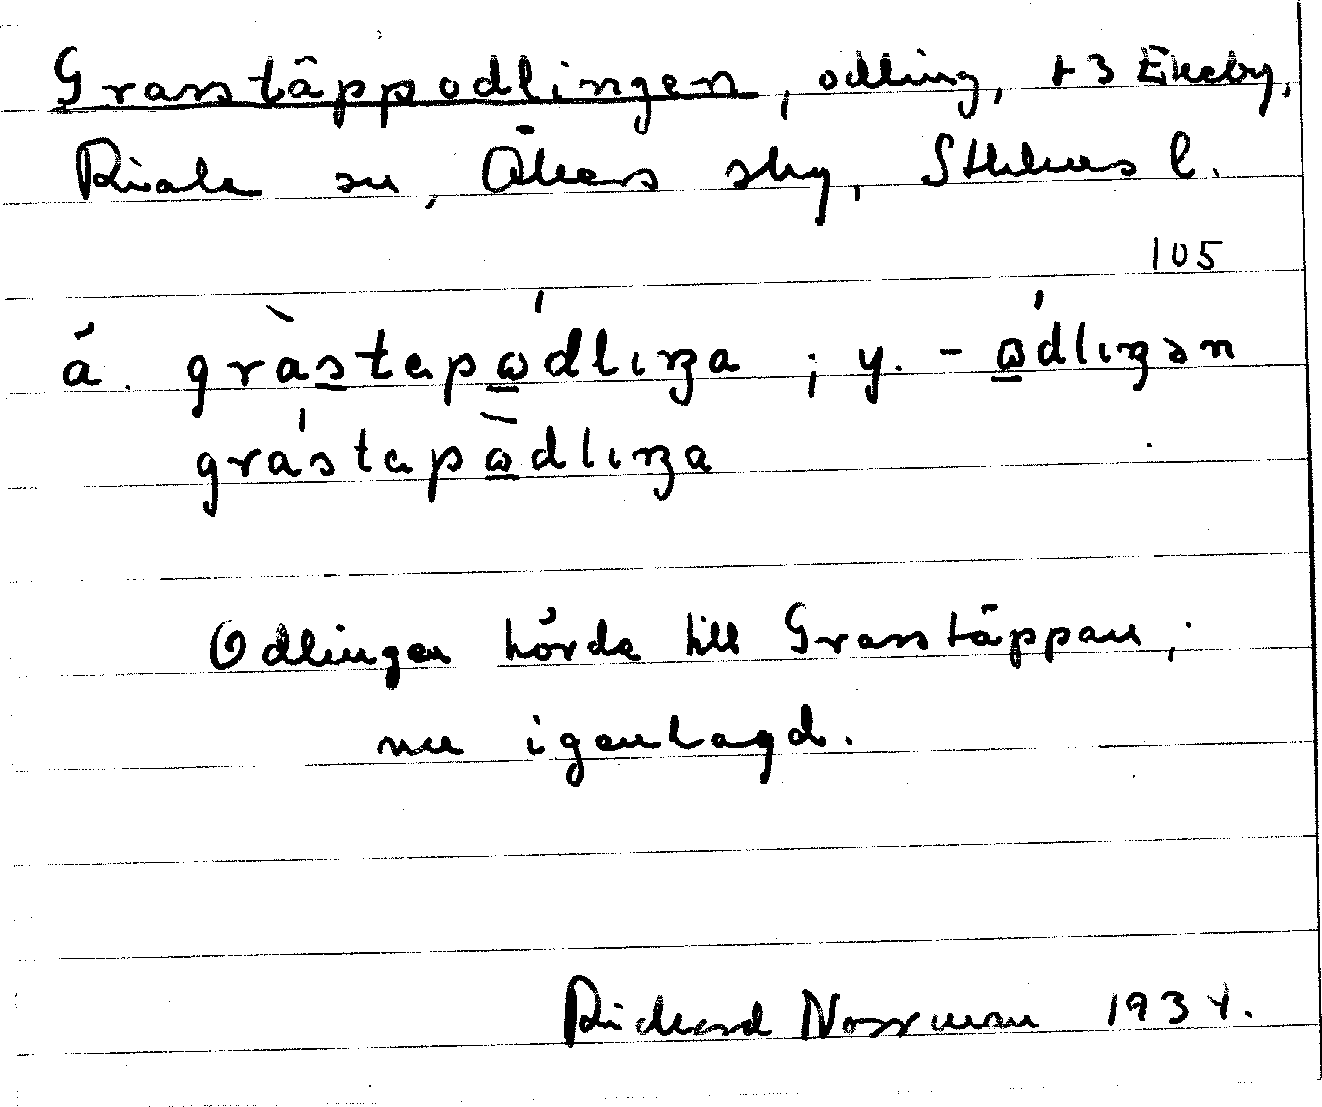 Grasstäppodlingen, odling, t 3 Ekeby,
Riala sn, Åkers skg, Sthlms l.
105
á. gràstapωdlıŋa ; y. - ωdlıŋən
grástapωdlıŋa
Odlingen hörde till Grasstäppan,
nu igenlagd.
Richard Norrman 1934.